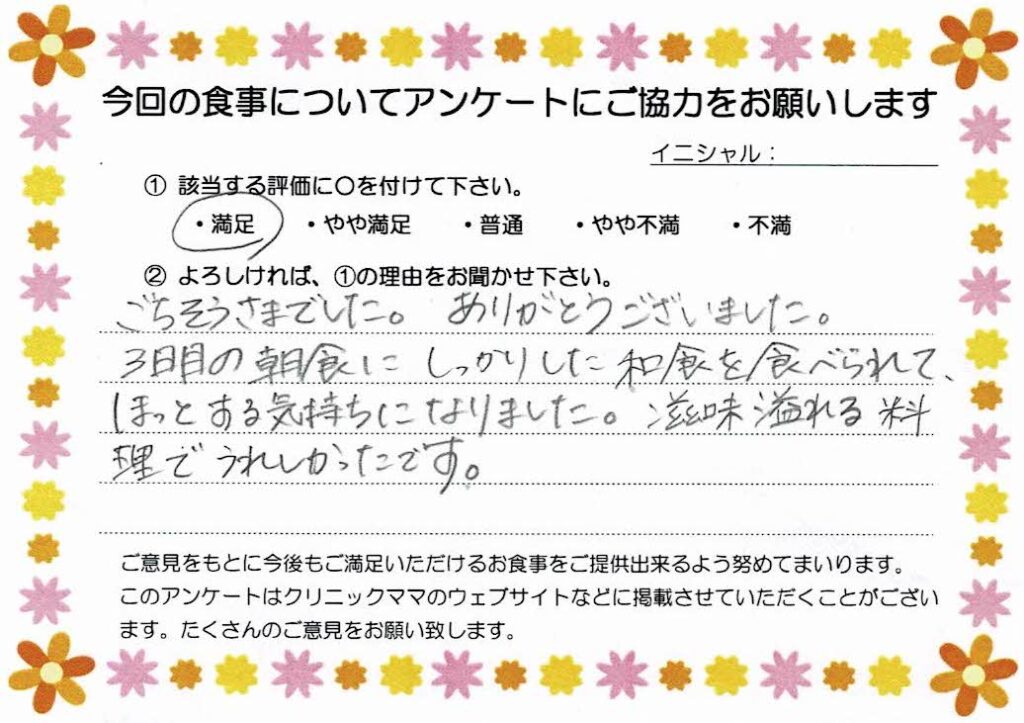 今回の食事についてアンケートにご協力をお願いします
イニシャル：
① 該当する評価に〇を付けて下さい。
・満足 ・やや満足 ・普通 ・やや不満 ・不満
② よろしければ、①の理由をお聞かせ下さい。
ごちそうさまでした。 ありがとうございました。
3日目の朝食に しっかりした和食を食べられて、
ほっとする気持ちになりました。滋味溢れる料
理でうれしかったです。
ご意見をもとに今後もご満足いただけるお食事をご提供出来るよう努めてまいります。
このアンケートはクリニックママのウェブサイトなどに掲載させていただくことがござい
ます。たくさんのご意見をお願い致します。